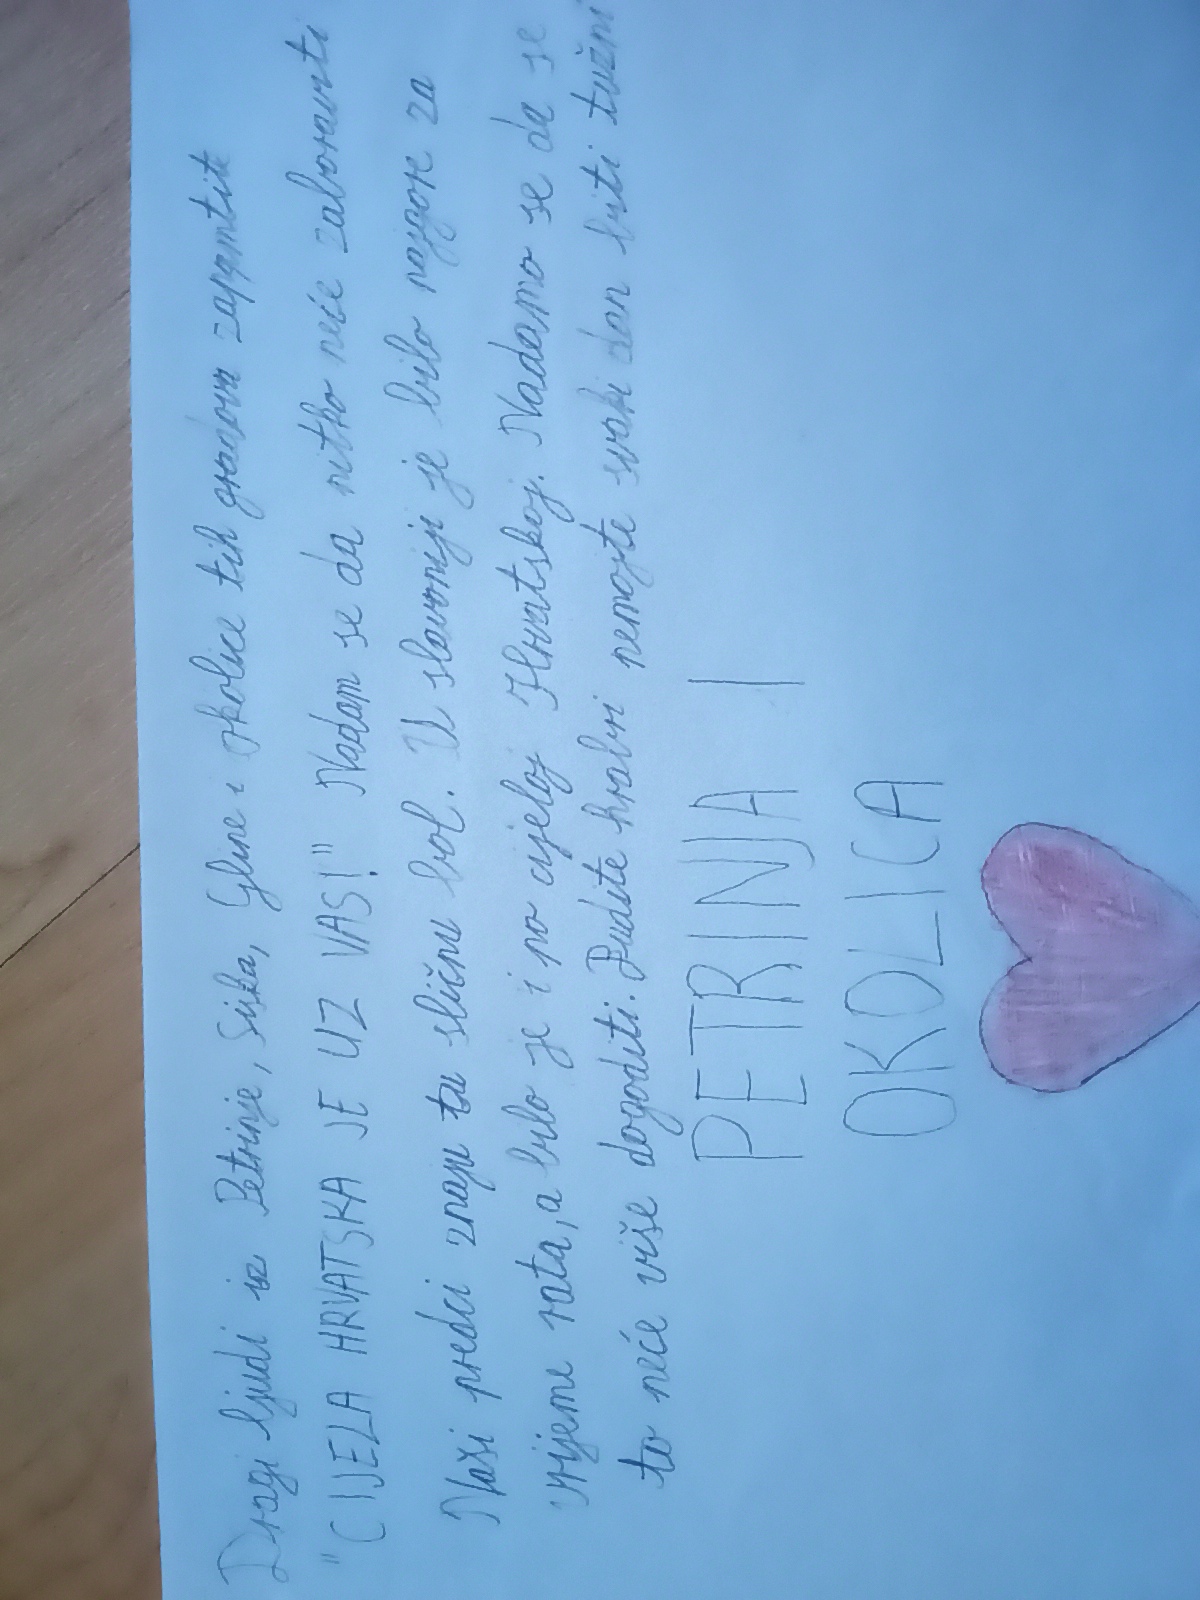 Dragi ljudi iz Petrinje, Siska, Gline i okolice tih gradova zapamtite
"CIJELA HRVATSKA JE UZ VAS!" Nadam se da nitko neće zaboraviti
Naši predci znaju tu sličnu bol. U slavoniji je bilo najgore za
vrijeme rata, a bilo je i po cijeloj Hrvatskoj. Nadamo se da se
to neće više dogoditi. Budite hrabri nemojte svaki dan biti tužni
PETRINJA I
OKOLICA